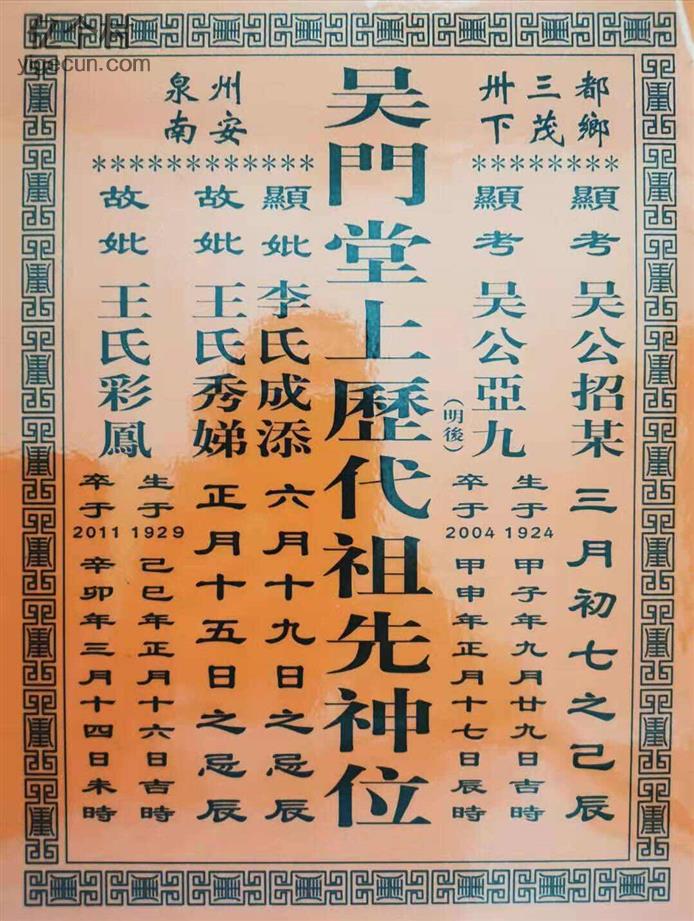 亿个村
yigecun.com
泉州
南安
卅三都
下茂鄉
顯考吴公招某三月初七之己辰
顯考吴公亞九
(明後)
生于1924甲子年九月廿九日吉時
卒于2004甲申年正月十七日辰時
吴門堂上歷代祖先神位
顯妣李氏成添六月十九日之忌辰
故妣王氏秀娣正月十五日之忌辰
故妣王氏彩鳳
生于1929己巳年正月十六日吉時
卒于2011辛卯年三月十四日未時